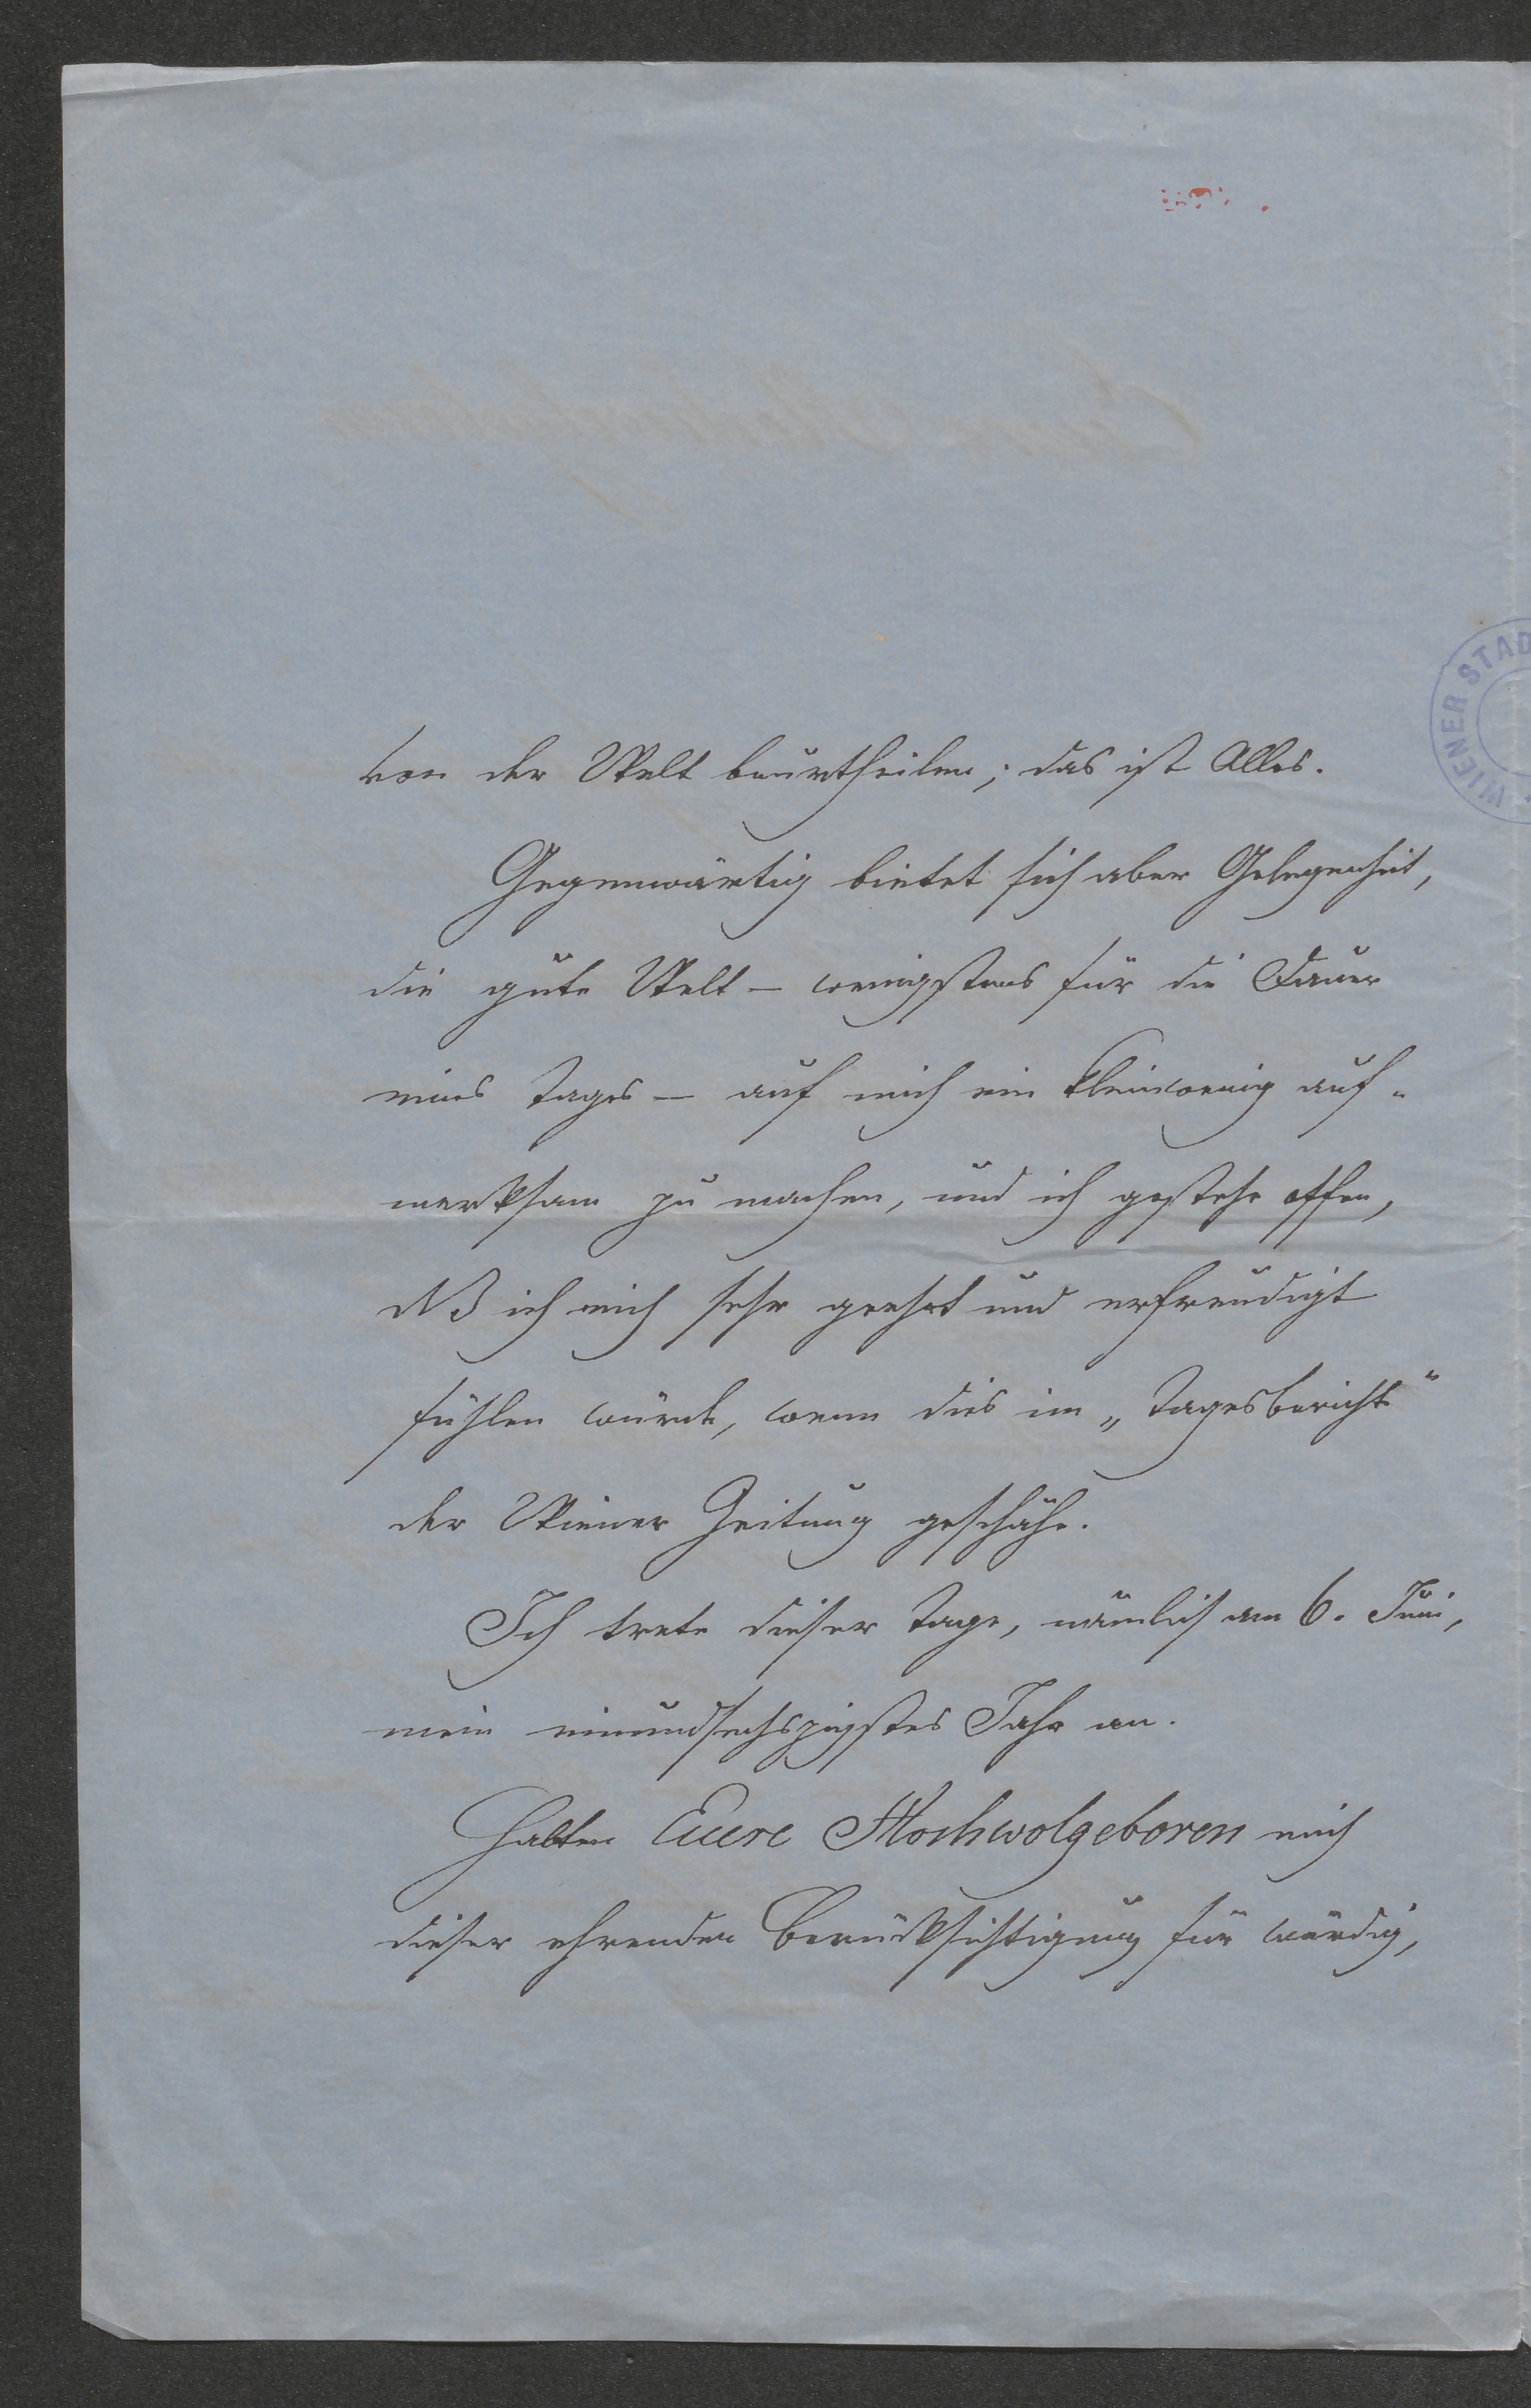 von der Welt beurtheilen; das ist Alles.
Gegenwärtig bietet sich aber Gelegenheit,
die gute Welt – wenigstens für die Dauer
eines Tages – auf mich ein kleinwenig auf-
merksam zu machen, und ich gestehe offen,
daß ich mich sehr geehrt und erfreudigt
fühlen würde, wenn dies im „Tagesbericht“
der Wiener Zeitung geschähe.
Ich trete dieser Tage, nämlich am 6. Juni,
mein einundsechszigstes Jahr an.
Halten Euere Hochwolgeboren mich
dieser ehrenden Berücksichtigung für würdig,
WIENER STAD